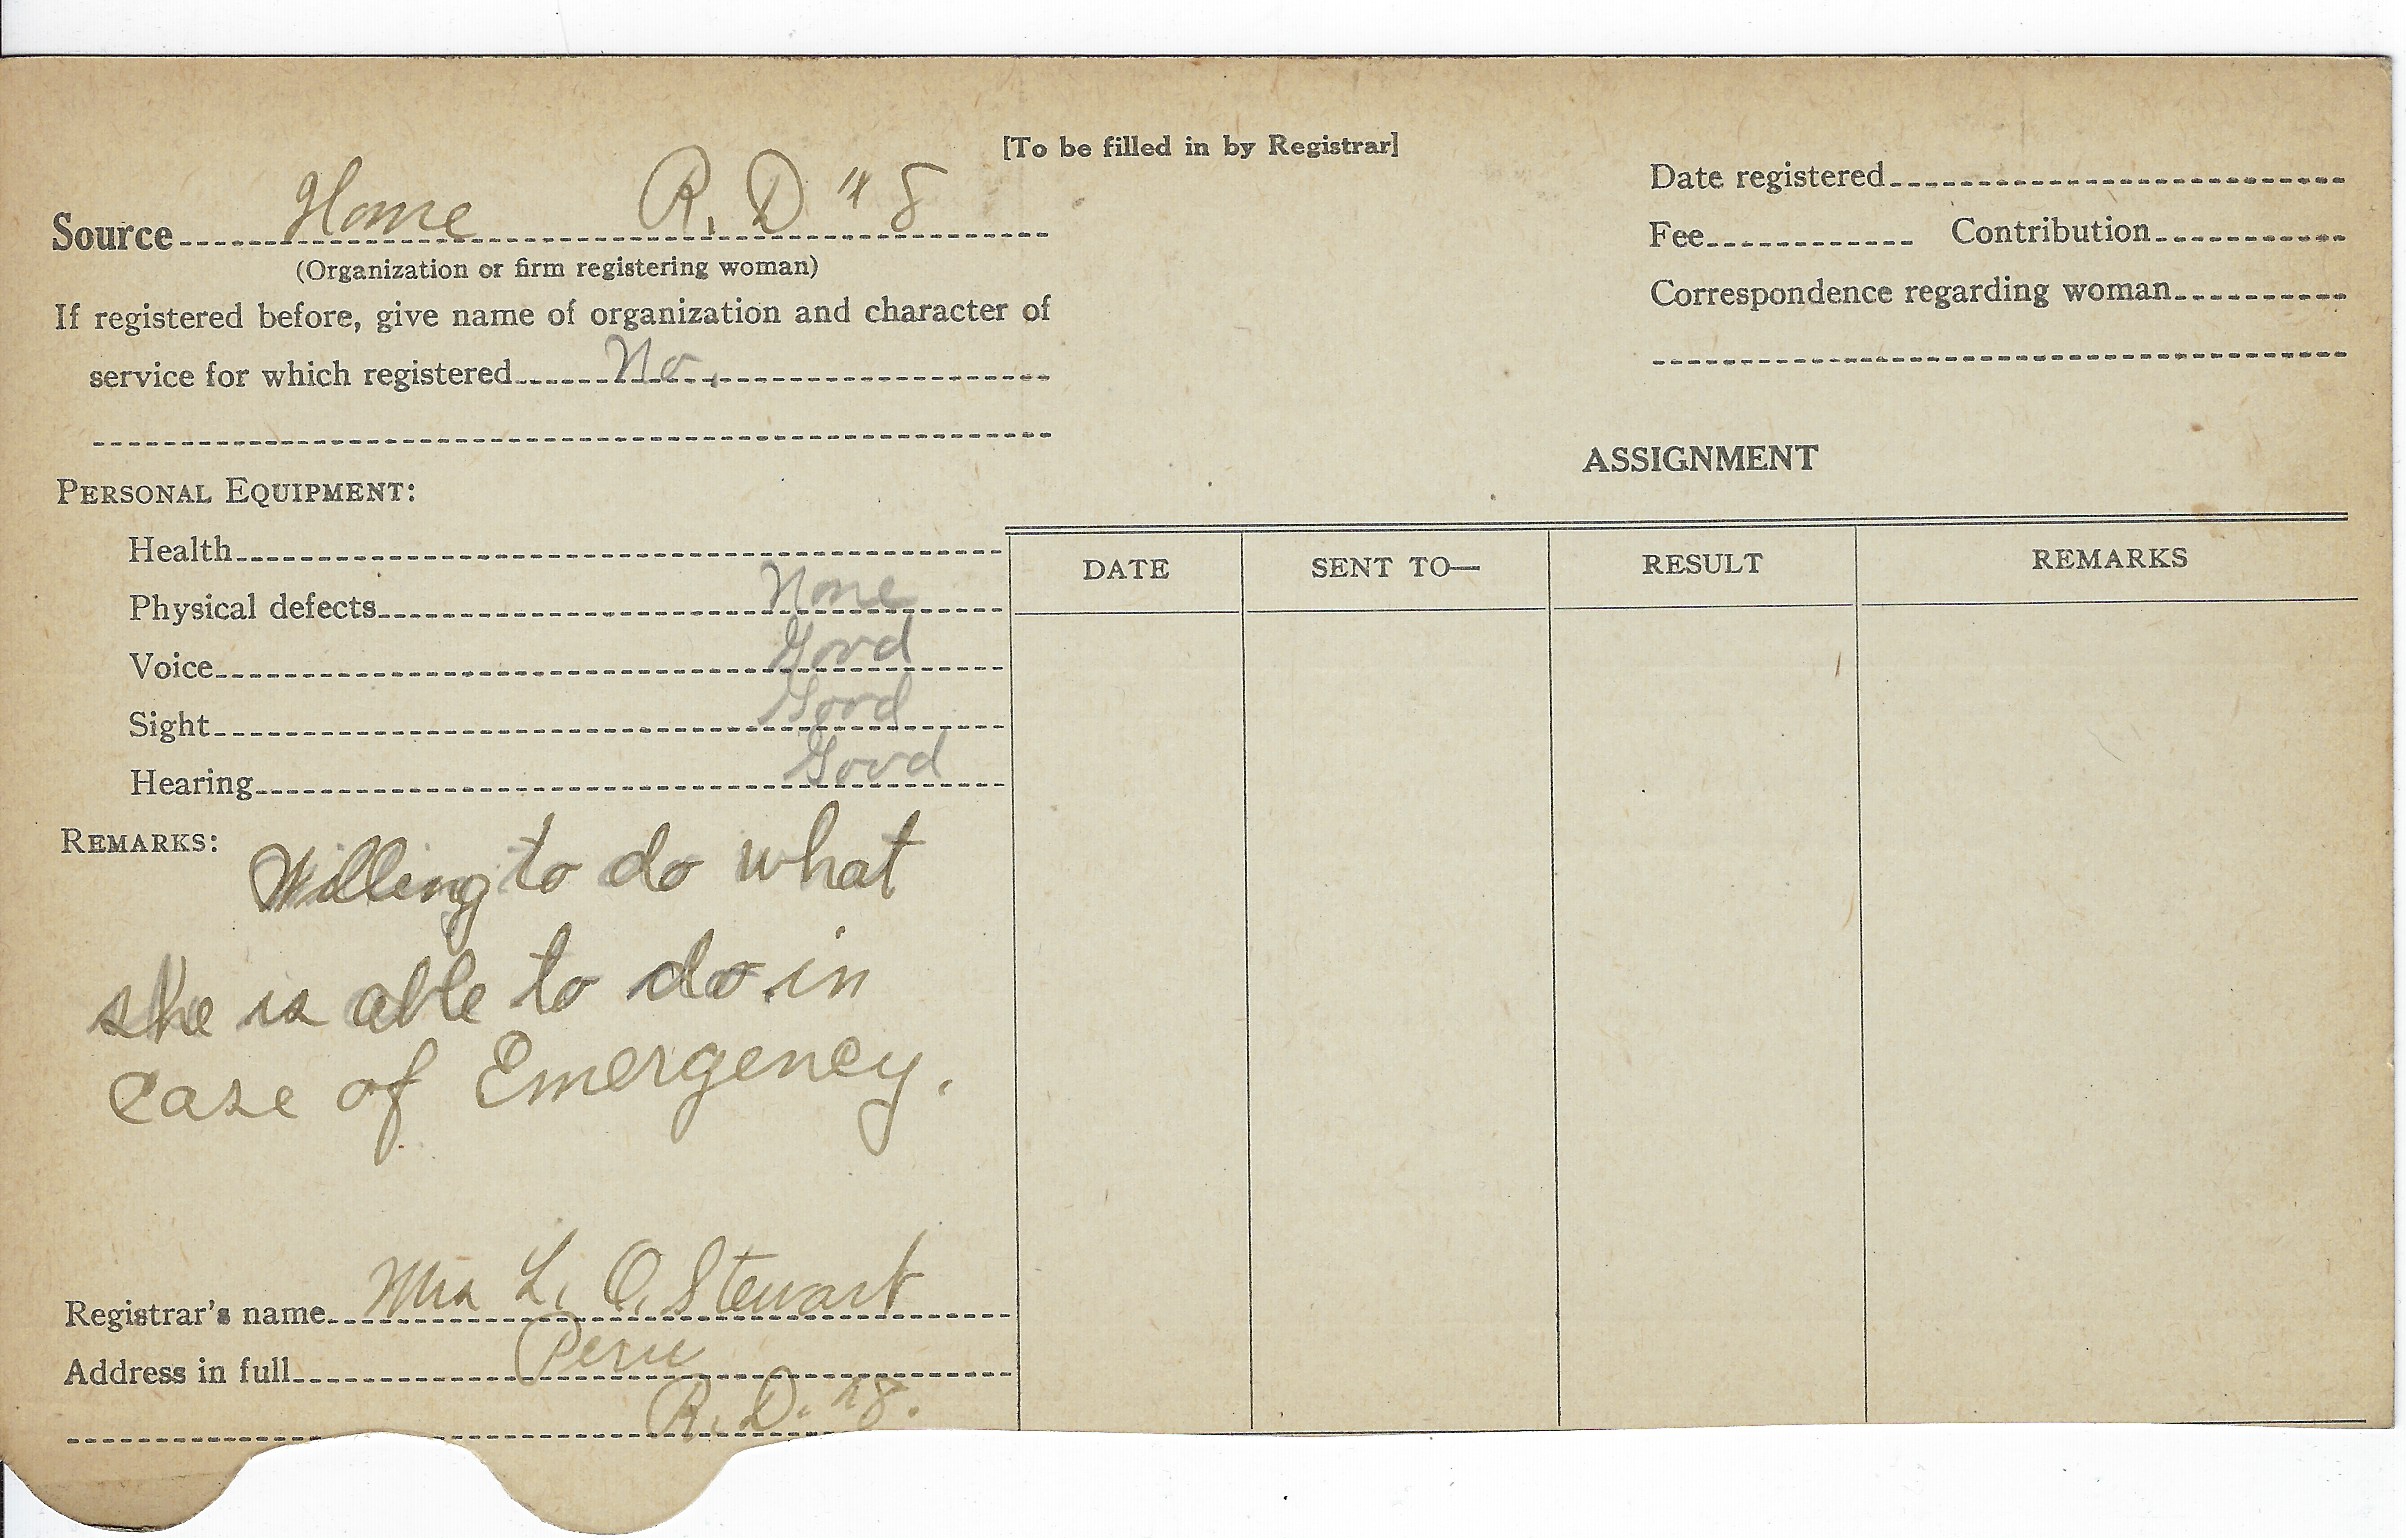 [To be filled in by Registrar]
Source Home R. D # 8
(Organization or firm registering woman)
If registered before, give name of organization and character of
service for which registered No.
PERSONAL EQUIPMENT:
Health
Physical defects None
Voice Good
Sight Good
Hearing Good
REMARKS: Willing to do what
she is able to do in
case of Emergency.
Registrar's name Mrs L. O. Stewart
Address in full Peru
R. D. #8.
Date registered
Fee Contribution
Correspondence regarding woman
ASSIGNMENT
DATE SENT TO— RESULT REMARKS